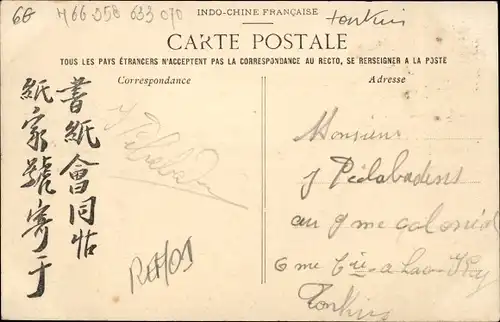 66
M66 358 633 070
INDO-CHINE FRANÇAISE
tonkin
CARTE POSTALE
TOUS LES PAYS ÉTRANGERS N'ACCEPTENT PAS LA CORRESPONDANCE AU RECTO, SE RENSEIGNER A LA POSTE
Correspondance
Adresse
書紙會同帖
紙家號寄于
Monsieur
J Pélabadens
au 9 me colonial
6 me Cie a Lao-Kay
Tonkin